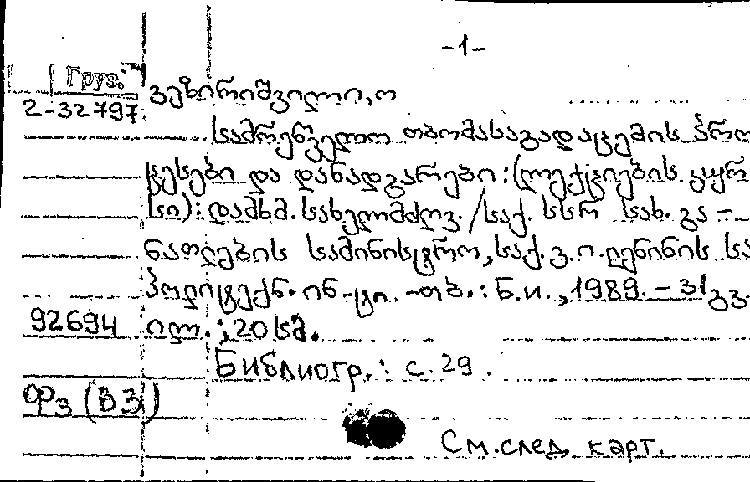 -1-
Груз.
2-32797. ვეზირიშვილი, ო
სამრეწველო თბომასაგადაცემის პრო
ცესები და დანადგარები: (ლექციების კურ
სი): დამხმ. სახელმძღვ. / საქ. სსრ სახ. გა-
ნათლების სამინისტრო, საქ. ვ. ი. ლენინის სა
პოლიტექნ. ინ-ტი. -თბ.: ნ.ი., 1989. - 31 გვ.
92694 ილ.; 20 სმ.
Библиогр.: с. 29.
ОРз (ВЗ)
См. след. карт.